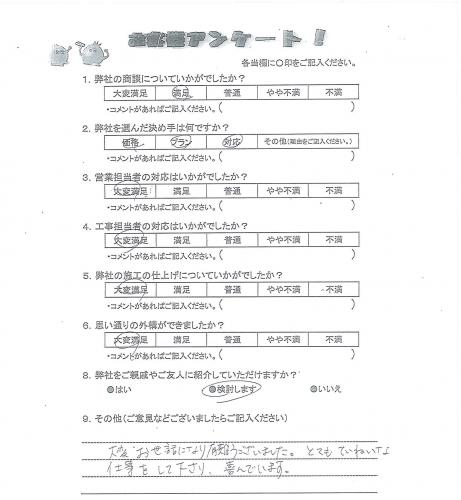 お客様アンケート！
各当欄に○印をご記入ください。
1. 弊社の商談についていかがでしたか？
大変満足 満足 普通 やや不満 不満
・コメントがあればご記入ください。( )
2. 弊社を選んだ決め手は何ですか？
価格 プラン 対応 その他(理由をご記入ください。)
・コメントがあればご記入ください。( )
3. 営業担当者の対応はいかがでしたか？
大変満足 満足 普通 やや不満 不満
・コメントがあればご記入ください。( )
4. 工事担当者の対応はいかがでしたか？
大変満足 満足 普通 やや不満 不満
・コメントがあればご記入ください。( )
5. 弊社の施工の仕上げについていかがでしたか？
大変満足 満足 普通 やや不満 不満
・コメントがあればご記入ください。( )
6. 思い通りの外構ができましたか？
大変満足 満足 普通 やや不満 不満
・コメントがあればご記入ください。( )
8. 弊社をご親戚やご友人に紹介していただけますか？
●はい ●検討します ●いいえ
9. その他(ご意見などございましたらご記入ください)
大変お世話になり有難うございました。とてもていねいな
仕事をして下さり、喜んでいます。